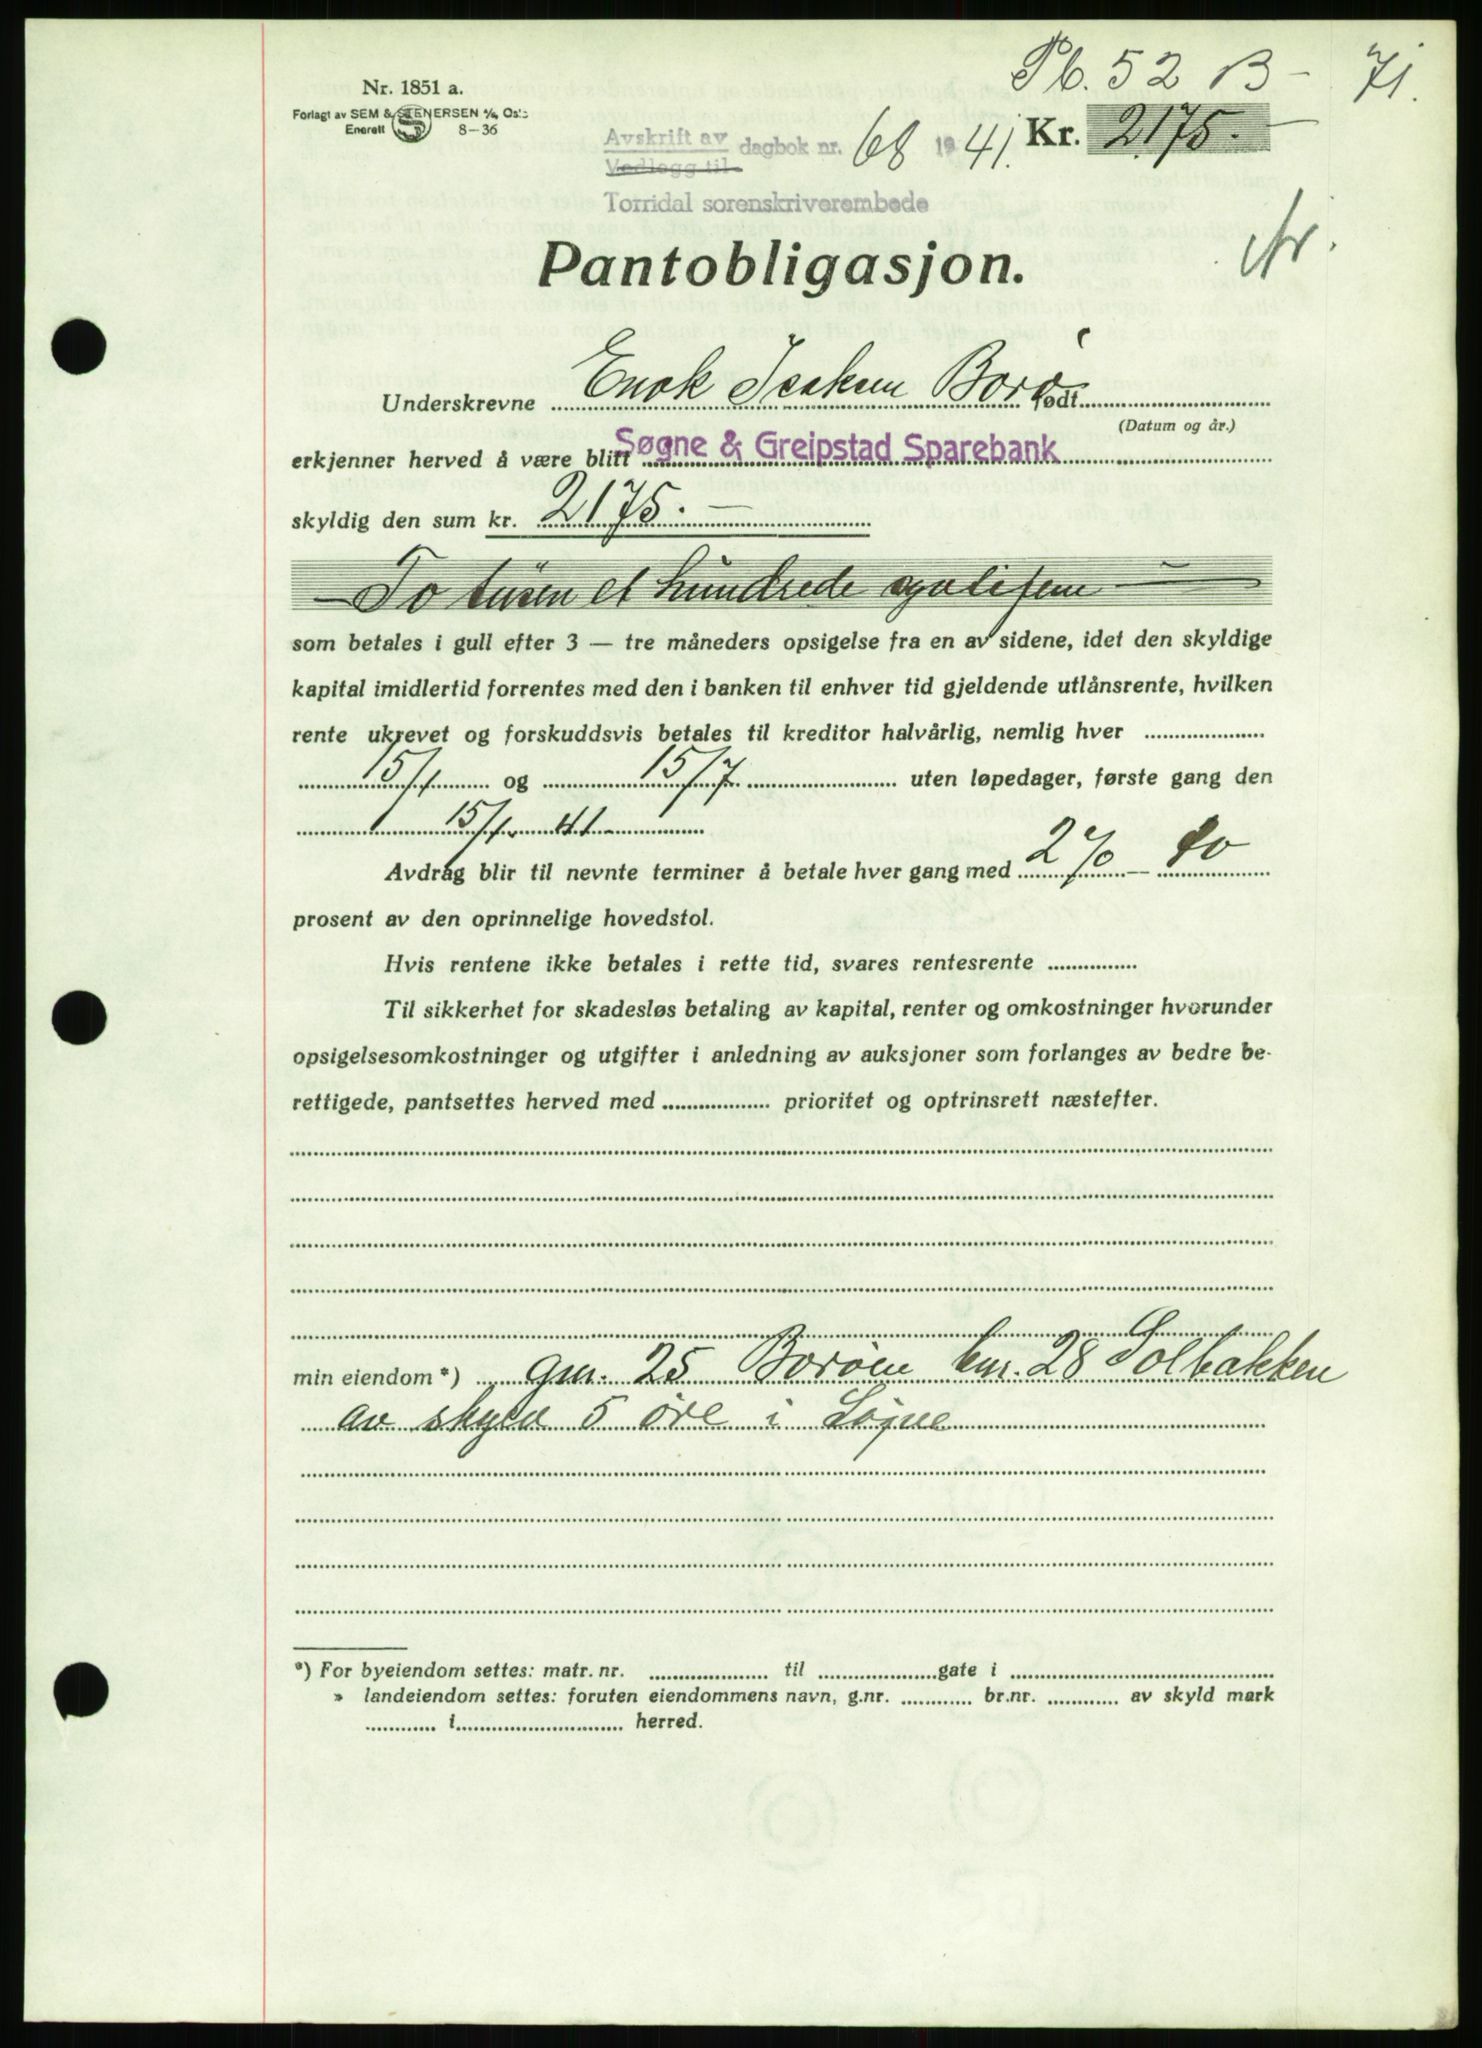 Pb. 52 B - 71.
Nr. 1851 a.
Forlagt av SEM & STENERSEN A/S, Oslo
Enerett 8-36
Avskrift av
Vedlegg til
dagbok nr. 68 1941.
Kr. 2175.-
Torridal sorenskriverembede
Pantobligasjon.
Underskrevne Enok Isaksen Borø født
(Datum og år.)
erkjenner herved å være blitt Søgne & Greipstad Sparebank
skyldig den sum kr. 2175.-
- To tusen et hundrede sytti fem -
som betales i gull efter 3 — tre måneders opsigelse fra en av sidene, idet den skyldige
kapital imidlertid forrentes med den i banken til enhver tid gjeldende utlånsrente, hvilken
rente ukrevet og forskuddsvis betales til kreditor halvårlig, nemlig hver
15/1 og 15/7 uten løpedager, første gang den
15/1 - 41
Avdrag blir til nevnte terminer å betale hver gang med 2 %
prosent av den oprinnelige hovedstol.
Hvis rentene ikke betales i rette tid, svares rentesrente
Til sikkerhet for skadesløs betaling av kapital, renter og omkostninger hvorunder
opsigelsesomkostninger og utgifter i anledning av auksjoner som forlanges av bedre be-
rettigede, pantsettes herved med prioritet og optrinsrett næstefter.
min eiendom *) gnr. 25 Borøen bnr. 28 Solbakken
av skyld 5 øre i Søgne
*) For byeiendom settes: matr. nr. til gate i
» landeiendom settes: foruten eiendommens navn, g.nr. br.nr. av skyld mark
i herred.